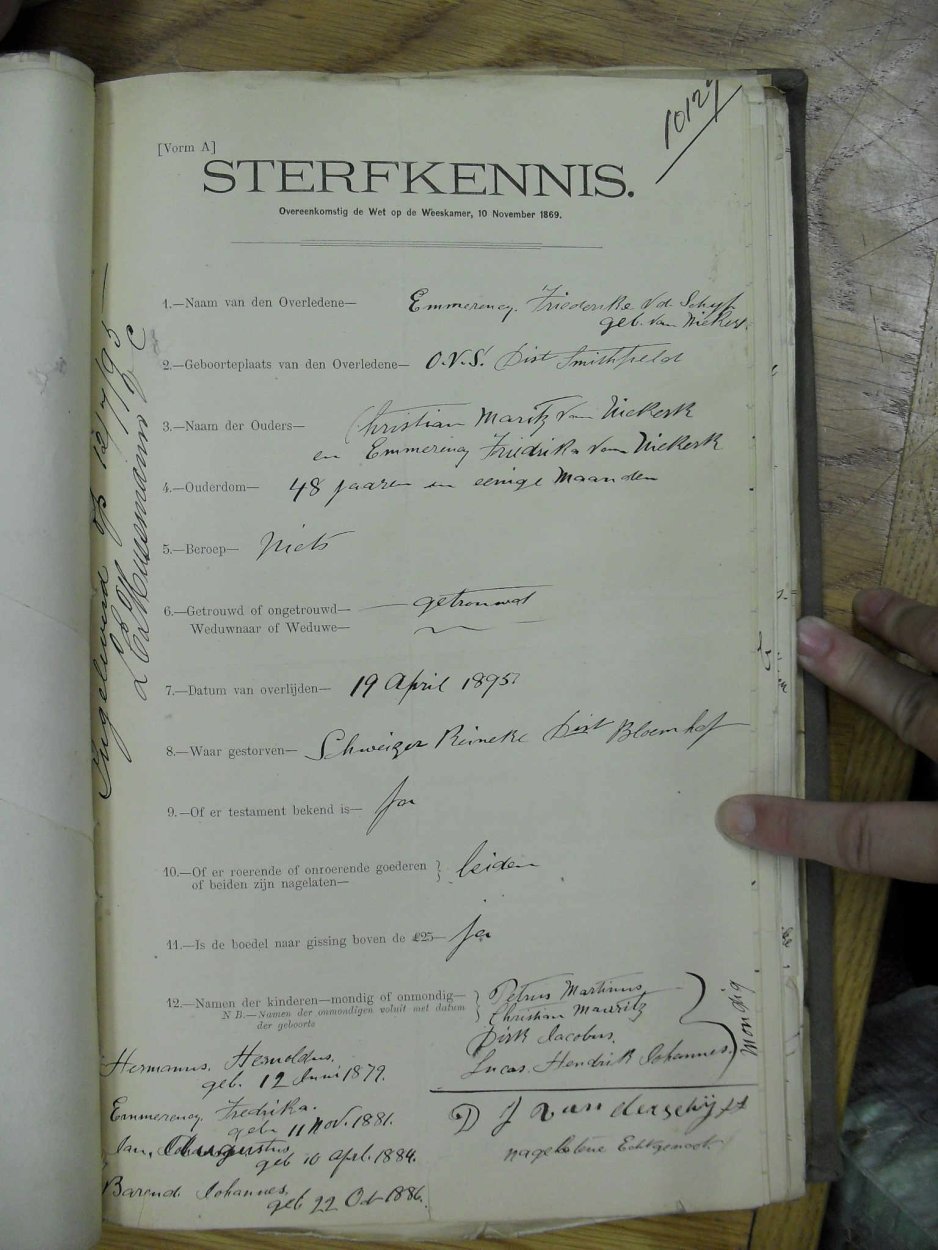 10127
[Vorm A]
STERFKENNIS.
Overeenkomstig de Wet op de Weeskamer, 10 November 1869.
1.—Naam van den Overledene— Emmerency Friederika v.d. Schyf
geb. van Niekerk
2.—Geboorteplaats van den Overledene— O.V.S. Dist Smithfield
3.—Naam der Ouders— Christian Maritz van Niekerk
en Emmerency Friedrika van Niekerk
4.—Ouderdom— 48 jaaren en eenige Maanden
5.—Beroep— Niets
6.—Getrouwd of ongetrouwd— getrouwd
Weduwnaar of Weduwe—
7.—Datum van overlijden— 19 April 1895
8.—Waar gestorven— Schweizer Reineke Dist Bloemhof
9.—Of er testament bekend is— Ja
10.—Of er roerende of onroerende goederen } beiden
of beiden zijn nagelaten—
11.—Is de boedel naar gissing boven de £25— Ja
12.—Namen der kinderen—mondig of onmondig— } Petrus Martinus
N B.—Namen der onmondigen voluit met datum Christian Mauritz
der geboorte Dirk Jacobus
Lucas Hendrik Johannes. Mondig
Hermanus Hernoldus.
geb. 12 Juni 1879.
Emmerency Fredrika.
geb 11 Nov. 1881.
Jan Augustus
geb 10 April. 1884.
Barend Johannes.
geb 22 Oct 1886.
D J van der schyff
nagelatene Echtgenoot
Ingeleverd op 12/7/95